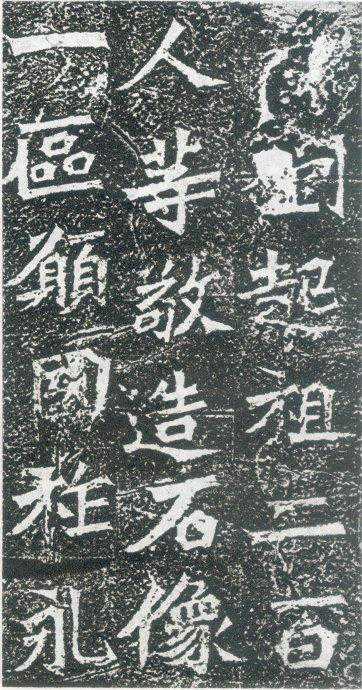 起祖二百
人等敬造石像
一區願國祚永